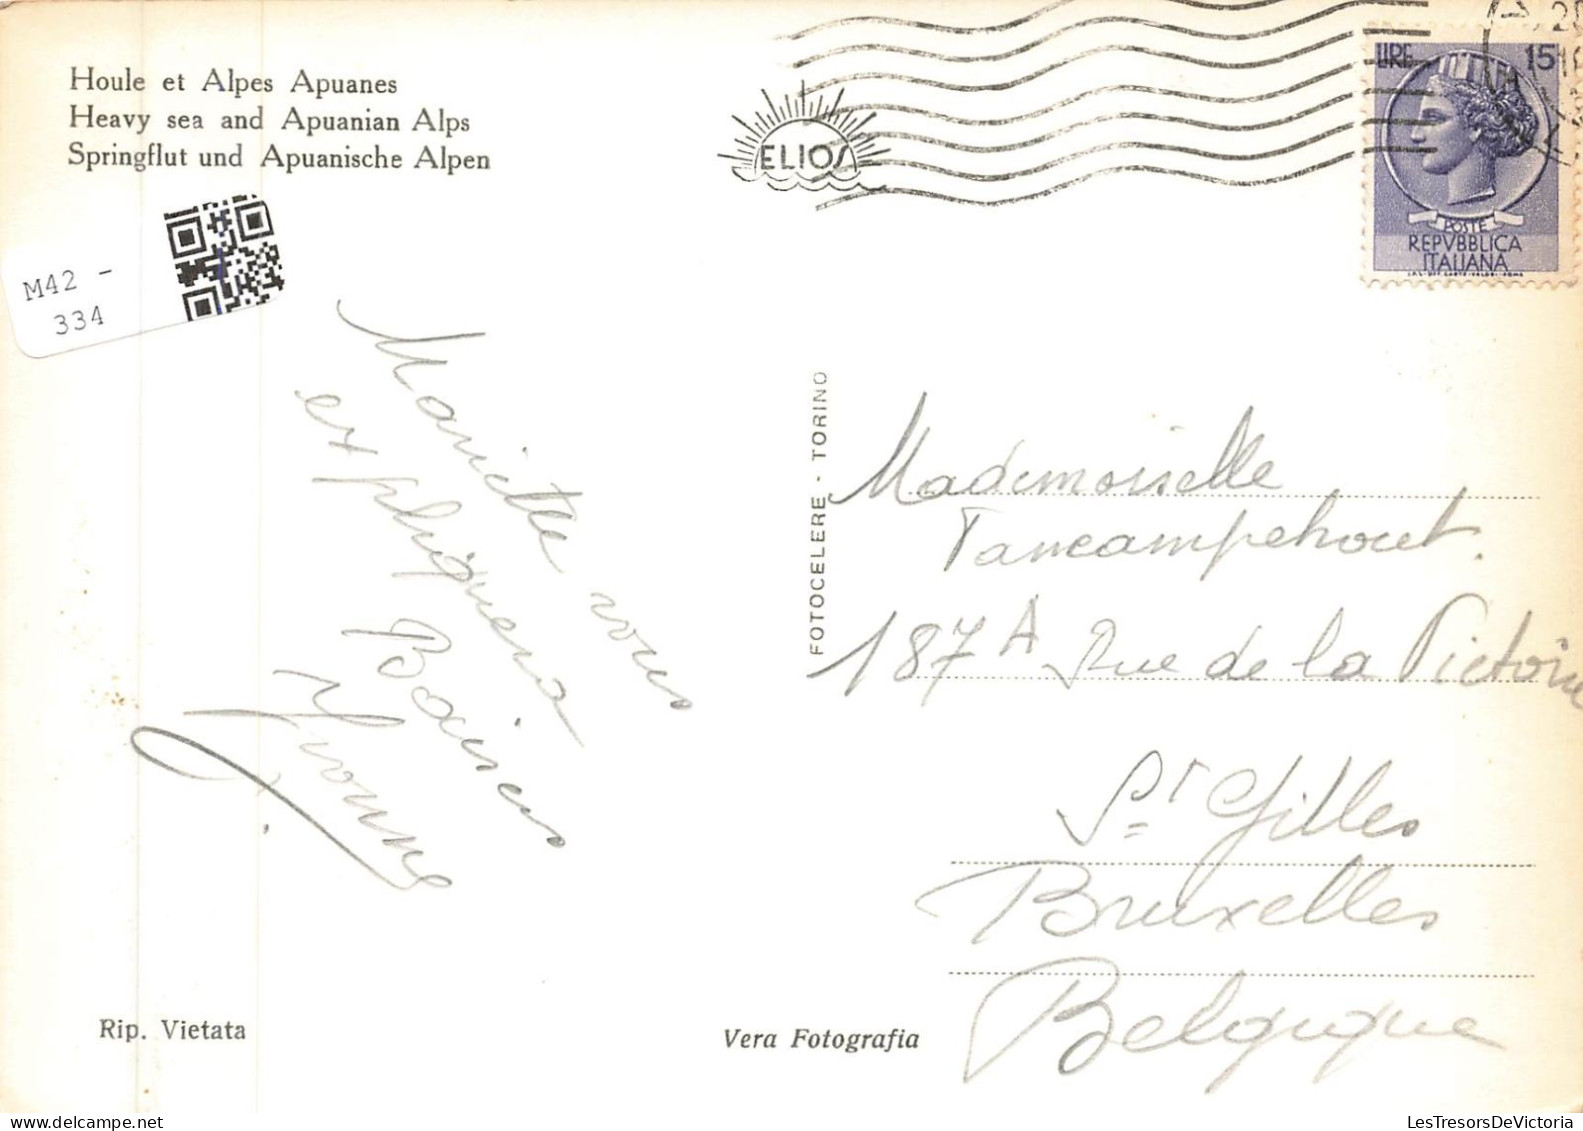 Houle et Alpes Apuanes
Heavy sea and Apuanian Alps
Springflut und Apuanische Alpen
M42 -
334
ELIOS
LIRE 15
POSTE
REPVBBLICA
ITALIANA
Mariette vous
expliquera
Baisers
Yvonne
FOTOCELERE - TORINO
Mademoiselle
Vancampenhout.
187A Rue de la Victoire
St Gilles
Bruxelles
Belgique
Rip. Vietata
Vera Fotografia
www.LesTresorsDeVictoria.com
LesTresorsDeVictoria